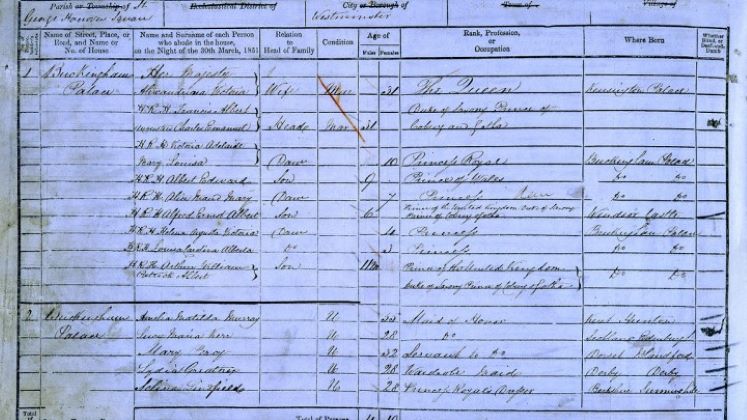 Parish or Township of St.
George Hanover Square
Ecclesiastical District of
City or Borough of
Westminster
Town of
Village of
Name of Street, Place, or Road, and Name or No. of House
Name and Surname of each Person who abode in the house, on the Night of the 30th March, 1851
Relation to Head of Family
Condition
Age of
Males
Females
Rank, Profession, or Occupation
Where Born
Whether Blind, or Deaf-and-Dumb
1 Buckingham Her Majesty
Palace Alexandrina Victoria Wife Mar 31 The Queen Kensington Palace
H R H Francis Albert Duke of Saxony Prince of
Augustus Charles Emanuel Head Mar 31 Coburg and Gotha
H R H Victoria Adelaide
Mary Louisa Daur 10 Princess Royal Buckingham Palace
H R H Albert Edward Son 9 Prince of Wales Do Do
H R H Alice Maud Mary Daur 7 Princess Do Do
H R H Alfred Ernest Albert Son 6 Prince of the United Kingdom Duke of Saxony Prince of Coburg Gotha Windsor Castle
H R H Helena Augusta Victoria Daur 4 Princess Buckingham Palace
H R H Louisa Carolina Alberta Do 3 Princess Do Do
H R H Arthur William Son Prince of the United Kingdom Do Do
Patrick Albert Duke of Saxony Prince of Coburg Gotha
2 Buckingham Amelia Matilda Murray U Maid of Honor Kent
Palace Lucy Maria Kerr U 28 Do Scotland Edinburgh
Mary U 32 Servant to Do Dorset Blandford
Lydia U 28 Wardrobe Maid Derby Derby
Selina U 28 Princess Royals Dresser Berkshire
Total of Persons